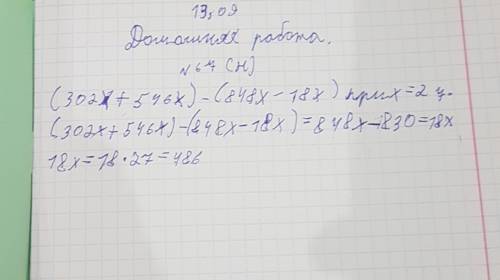 13,09
Домашняя работа.
№ 67 (Н)
(302х+546х)-(848х-18х) при х=27.
(302х+546х)-(848х-18х)=848х-830=18х
18х=18·27=486